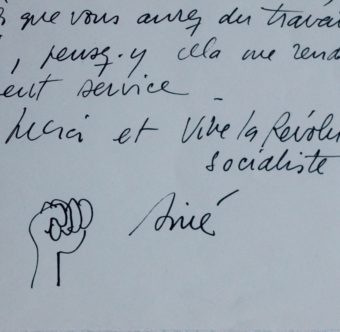 que vous aurez du travai
, pensez-y cela me rend
ent service
Merci et Vive la Révolu
socialiste
Siné